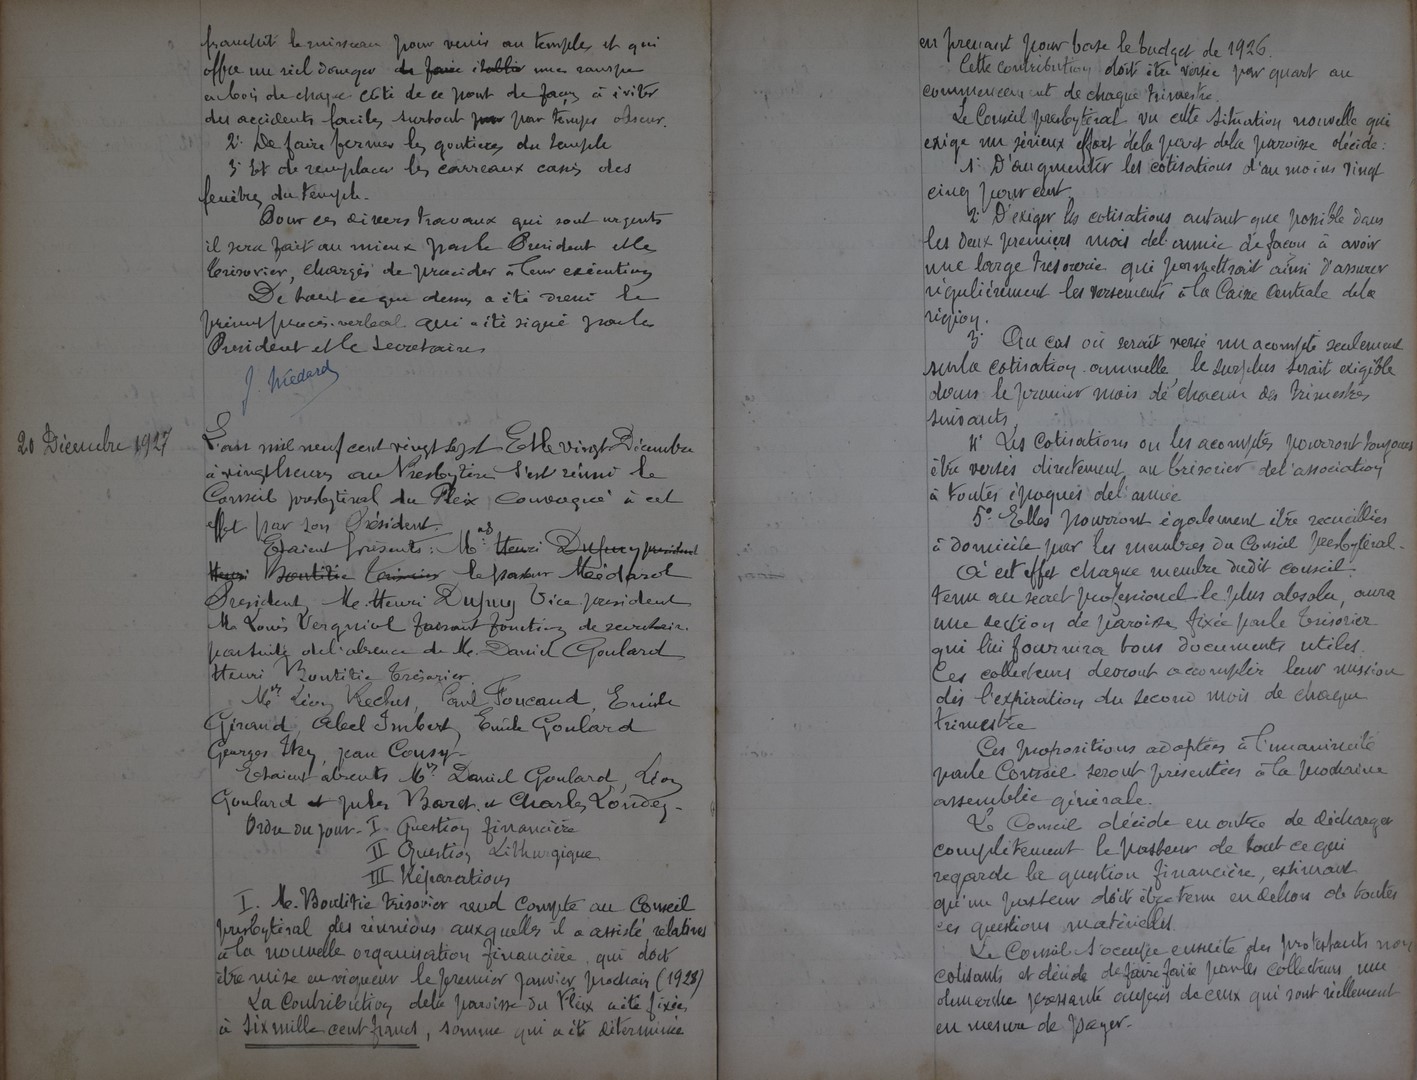 franchit le ruisseau pour venir au temple, et qui
offre un réel danger de faire établir une rampe
en bois de chaque côté de ce pont de façon à éviter
des accidents faciles surtout par par temps obscur.
2° De faire fermer les goutières du temple
3° Et de remplacer les carreaux cassés des
fenêtres du temple.
Pour ces divers travaux qui sont urgents
il sera fait au mieux par le Président et le
trésorier, chargés de procéder à leur exécution
De tout ce que dessus a été dressé le
présent procès-verbal qui a été signé par le
Président et le Secrétaire
J. Médard
20 Décembre 1927
L'an mil neuf cent vingt sept Et le vingt Décembre
à vingt heures au Presbytère s'est réuni le
Conseil presbytéral du Fleix, convoqué à cet
effet par son Président.
Etaient présents: Mrs Henri Dupuy président
Henri Boutitie trésorier le pasteur Médard
Président, M. Henri Dupuy Vice président
M. Louis Vergniol faisant fonction de secrétaire
par suite de l'absence de M. Daniel Goulard
Henri Boutitie Trésorier.
Mrs Léon Rochus, Paul Foucaud, Emile
Giraud, Abel Imbert, Emile Goulard
Georges Itey, jean Cousy-
Etaient absents Mrs Daniel Goulard, Léon
Goulard et jules Baret, et Charles Londeg-
Ordre du jour- I- Question financière
II Question Lithurgique
III Réparations
I. M. Boutitie trésorier rend compte au Conseil
presbytéral des réunions auxquelles il a assisté relatives
à la nouvelle organisation financière qui doit
être mise en vigueur le premier janvier prochain (1928)
La contribution de la paroisse du Fleix a été fixée
à six mille cent francs, somme qui a été déterminée
en prenant pour base le budget de 1926.
Cette contribution doit être versée par quart au
commencement de chaque trimestre.
Le Conseil presbytéral vu cette situation nouvelle qui
exige un sérieux effort de la part de la paroisse décide:
1° D'augmenter les cotisations d'au moins vingt
cinq pour cent
2° D'exiger les cotisations autant que possible dans
les deux premiers mois de l'année de façon à avoir
une large trésorerie qui permettrait ainsi d'assurer
régulièrement les versements à la Caisse Centrale de la
région.
3° Au cas où serait versé un acompte seulement
sur la cotisation annuelle, le surplus serait exigible
dans le premier mois de chacun des trimestres
suivants.
4° Les cotisations ou les acomptes pourront toujours
être versés directement au trésorier de l'association
à toutes époques de l'année
5° Elles pourront également être recueillies
à domicile par les membres du Conseil presbytéral.
A cet effet chaque membre dudit conseil
tenu au secret professionel le plus absolu, aura
une section de paroisse fixée par le trésorier
qui lui fournira tous documents utiles.
Ces collecteurs devront accomplir leur mission
dès l'expiration du second mois de chaque
trimestre
Ces propositions adoptées à l'unanimité
par le Conseil seront présentées à la prochaine
assemblée générale.
Le Conseil décide en outre de décharger
complètement le pasteur de tout ce qui
regarde la question financière, estimant
qu'un pasteur doit être tenu en dehors de toutes
ces questions matérielles.
Le Conseil s'occupe ensuite des protestants non
cotisants et décide de faire faire par les collecteurs une
démarche pressante auprès de ceux qui sont réellement
en mesure de payer-